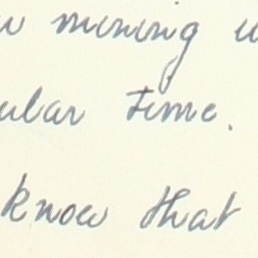 mining
ular time.
know that